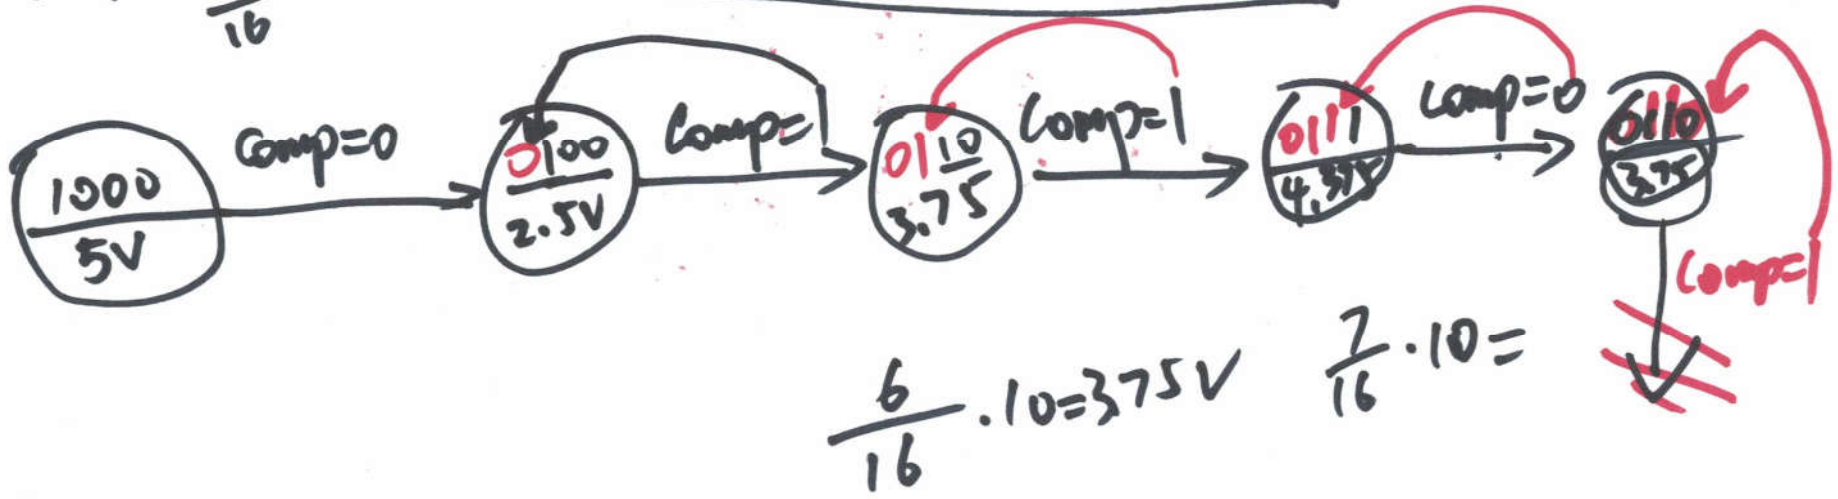 16
1000
5V
Comp=0
0100
2.5V
Comp=1
0110
3.75
Comp=1
0111
4.375
Comp=0
0110
3.75
Comp=1
6/16 · 10=3.75V
7/16 · 10=